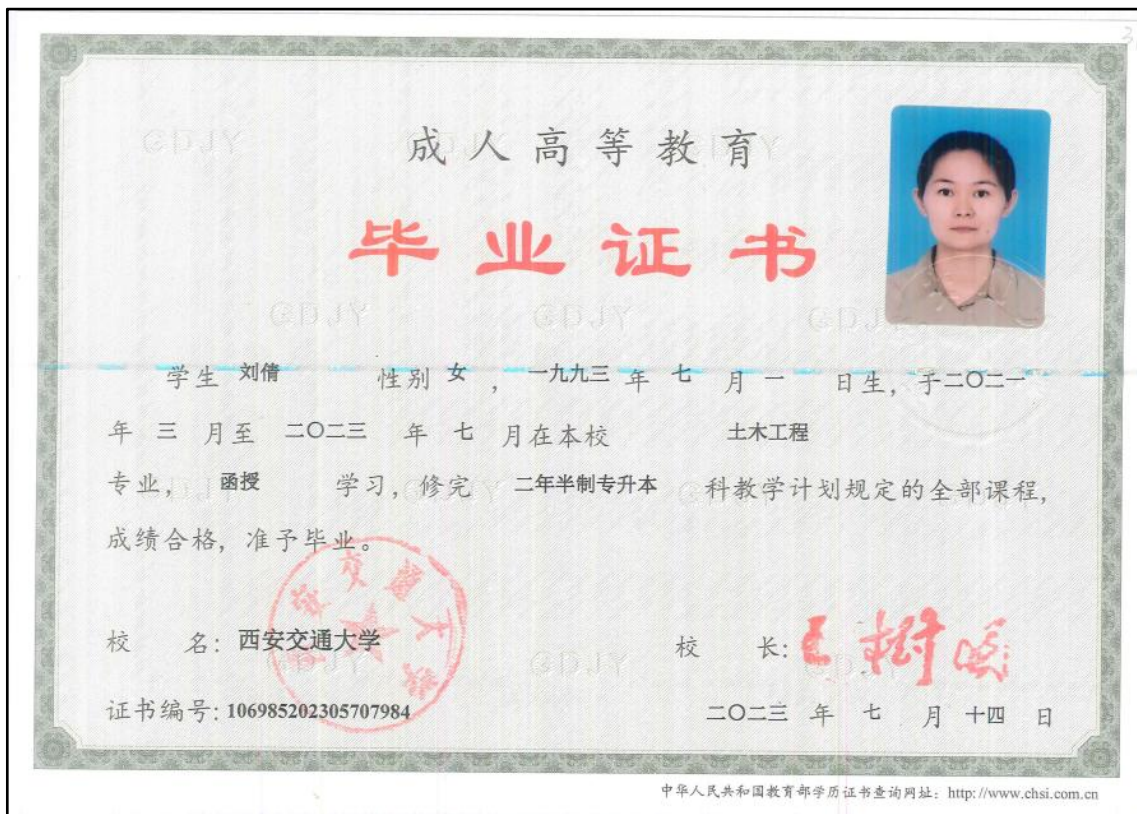 成人高等教育
毕业证书
学生 刘倩 性别 女 , 一九九三 年 七 月 一 日生, 于二〇二一
年 三 月至 二〇二三 年 七 月在本校 土木工程
专业, 函授 学习, 修完 二年半制专升本 科教学计划规定的全部课程,
成绩合格, 准予毕业。
校 名: 西安交通大学 校 长: 王树国
证书编号: 106985202305707984 二〇二三 年 七 月 十四 日
中华人民共和国教育部学历证书查询网址: http://www.chsi.com.cn